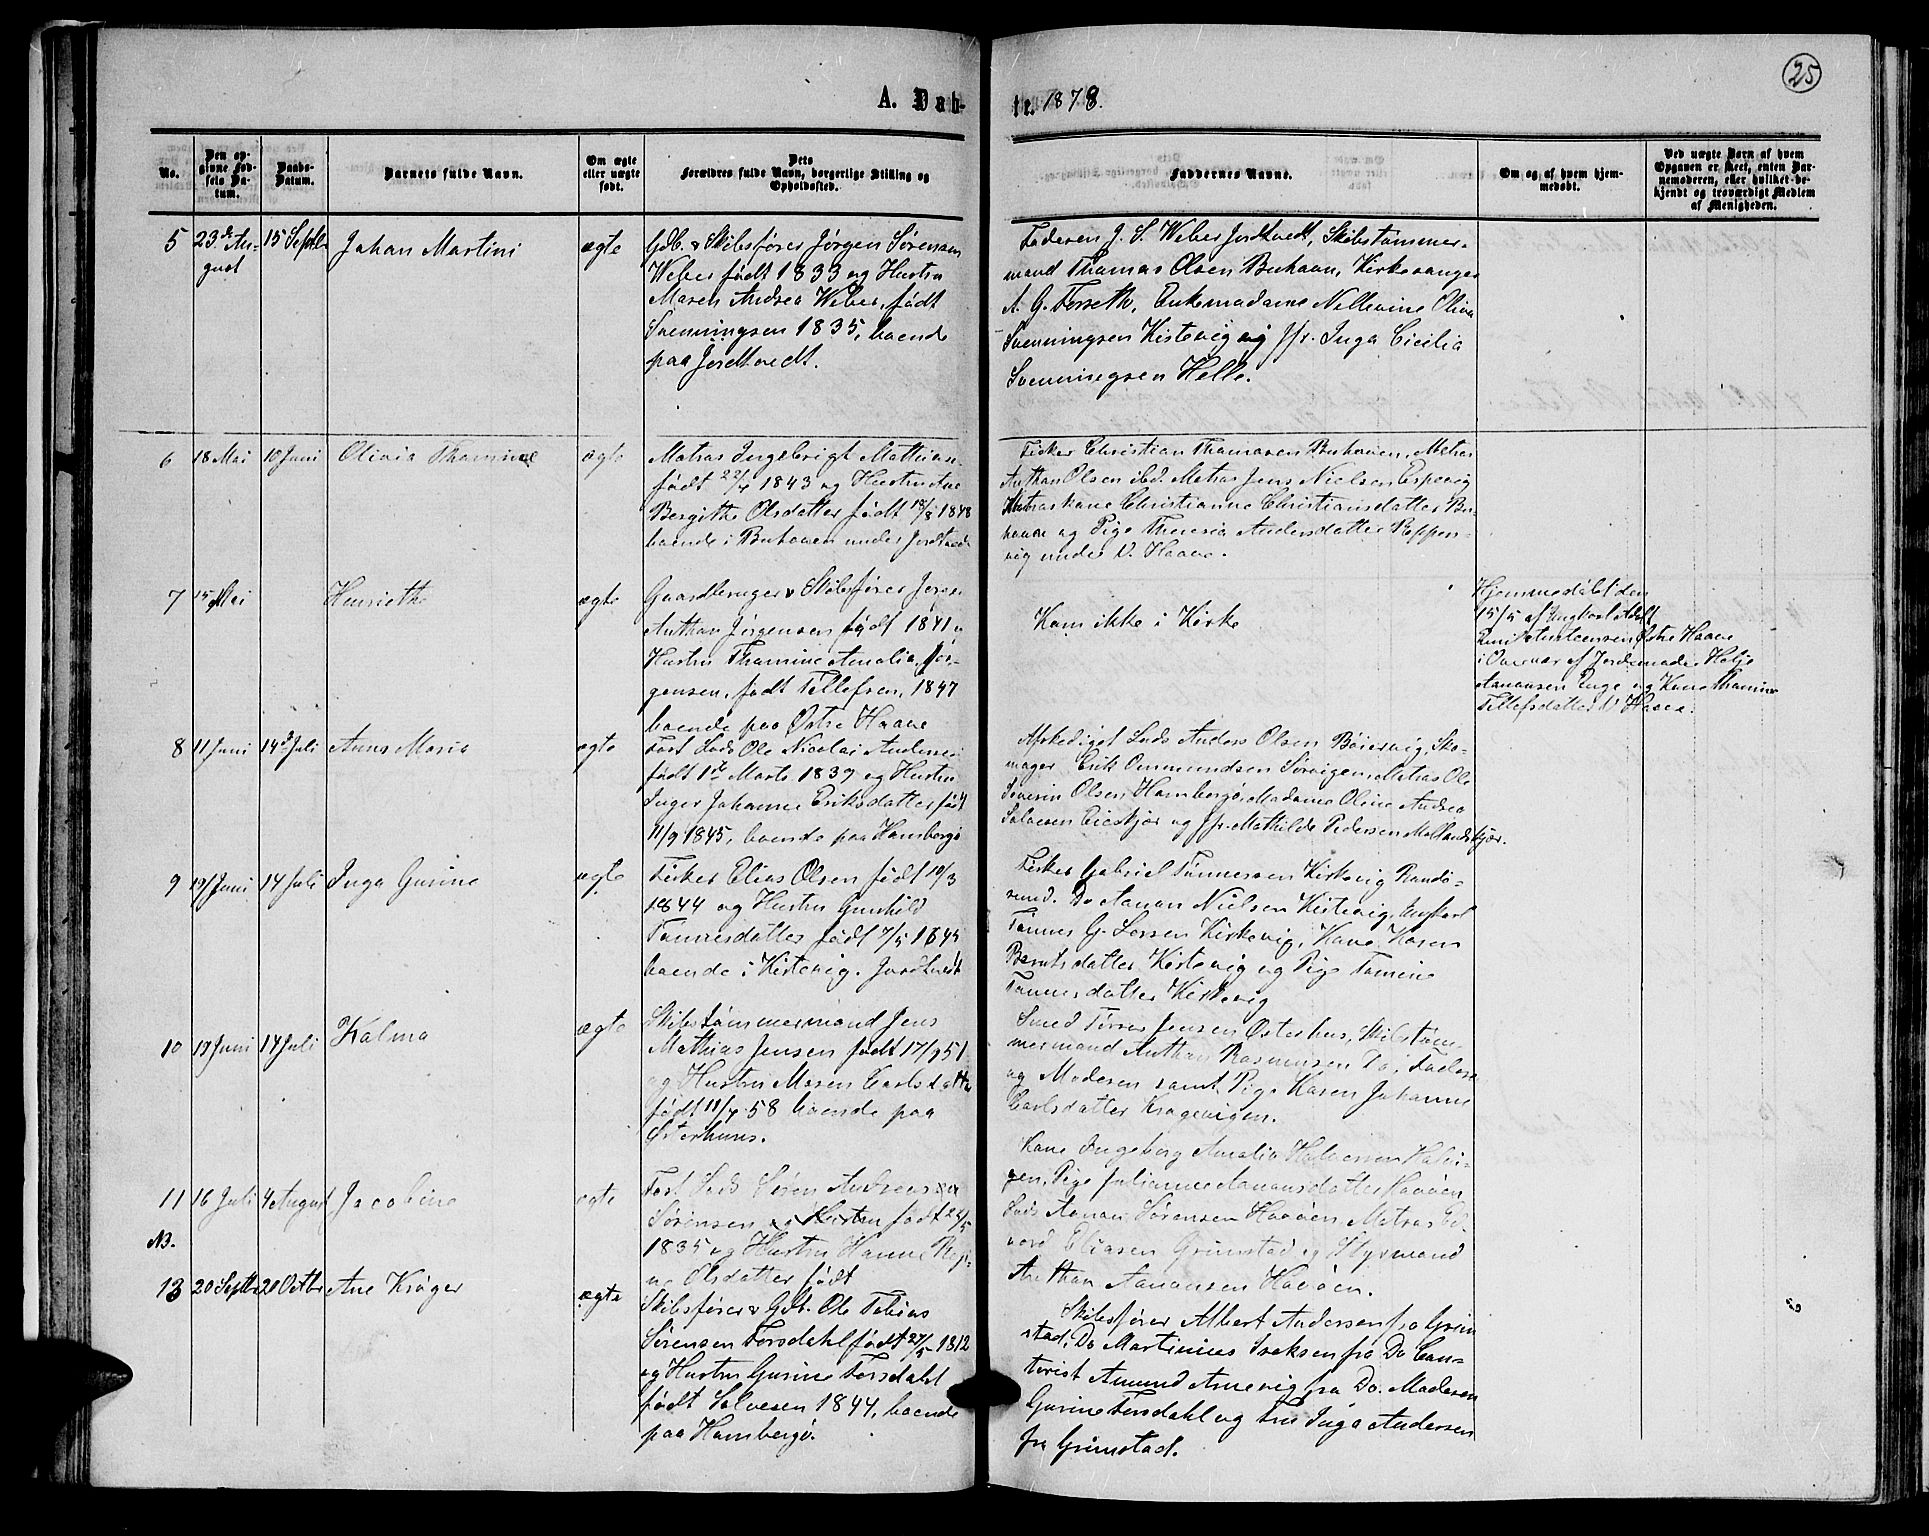 25
A. Døbte. 1878.
No.
Den opgivne Fødsels Datum.
Daabs-Datum.
Barnets fulde Navn.
Om ægte eller uægte født.
Dets Forældres fulde Navn, borgerlige Stilling og Opholdssted.
Faddernes Navne.
Om og af hvem hjemmedøbt.
Ved uægte Børn af hvem Opgaven er skeet, enten Barnemoderen, eller hvilket bekjendt og troværdigt Medlem af Menigheden.
5
23de August
15 Septbr
Johan Martini
ægte
Gdb. & Skibsfører Jørgen Sørensen
Weber født 1833 og Hustru
Maren Andrea Weber, født
Svenningsen 1835, boende
paa Jordtvedt.
Faderen J. S. Weber Jordtvedt, Skibstømmer-
mand Thomas Olsen Buhaven, Kirkesanger
A. G. Forseth, Enkemadame Nellevine Olivia
Svenningsen Kistevig og Jfr. Inga Cicilia
Svenningsen Helle.
6
18 Mai
10 Juni
Olivia Thomine
ægte
Matros Ingebrigt Mathias.
født 22/4 1843 og Hustru Ane
Bergithe Olsdatter født 18/8 1848
boende i Buhaven under Jordtvedt
Fisker Christian Thomasen Buhaven, Matros
Anthon Olsen ibd. Matros Jens Nielsen Espevig
Matroskone Christianne Christiansdatter Bu-
haven og Pige Theresia Andersdatter Reppers-
vig under V. Haave.
7
15 Mai
Henriethe
ægte
Gaardbruger & Skibsfører Jørgen
Anthon Jørgensen født 1841 og
Hustru Thomine Amalia Jør-
gensen, født Tellefsen, 1847
boende paa Østre Haave
Kom ikke i Kirke
Hjemmedøbt den
15/5 af Ungkarl Adolf
Emil Austensen Østre Haave
i Overvær af Jordemoder Helje
Aanonsen Enge og Kone Thomine
Tellefsdatter V. Haave.
8
11 Juni
14de Juli
Anne Maria
ægte
Fast Lods Ole Nicolai Andersen
født 1de Marts 1839 og Hustru
Inger Johanne Eriksdatter født
11/9 1845, boende paa Homborgø
Afskediget Lods Anders Olsen Bøievig, Sko-
mager Erik Ommundsen Sørvigen, Matros Ole
Severin Olsen Homborgø, Madame Oline Andrea
Salvesen Eieskjær og Jfr. Mathilde Pedersen Mollandskjær.
9
19 Juni
14 Juli
Inga Gusine
ægte
Fisker Elias Olsen født 10/3
1844 og Hustru Gunhild
Tønnesdatter født 7/5 1845
boende i Kistevig. Jordtvedt
Fisker Gabriel Tønnesen Kirkevig Randø-
sund. Do Aanon Nielsen Kistevig, Ungkarl
Tønnes G. Larsen Kirkevig, Kone Karen
Berntsdatter Kistevig og Pige Tomine
Tønnesdatter Kirkevig
10
19 Juni
14 Juli
Kalma
ægte
Skibstømmermand Jens
Mathias Jensen født 17/9 51
og Hustru Maren Carlsdatter
født 11/4 58 boende paa
Østerhuus.
Smed Terres Jensen Østerhus, Skibstøm-
mermand Anthon Rasmussen Do, Faderen
og Moderen samt Pige Karen Johanne
Carlsdatter Kragevigen.
11
16 Juli
4 August
Jacobine
ægte
Fast Lods Søren Andreas
Sørensen og Hustru født 22/5
1835 og Hustru Hanne Regi-
ne Olsdatter født
Kone Ingeborg Amalia Halvorsen Halvi-
gen, Pige Julianne Aanonsdatter Havøen
Lods Aanon Sørensen Havøen, Matros Ed-
vard Eliasen Grimstad og Styrmand
Anthon Aanonsen Havøen.
NB.
13
20 Septbr
20 Octbr
Ane Krøger
ægte
Skibsfører & Gdb. Ole Tobias
Sørensen Forsdahl født 27/5 1842
og Hustru Gusine Forsdahl
født Salvesen 1844, boende
paa Homborgø.
Skibsfører Albert Andersen fra Grim-
stad, Do Martinius Isaksen fra Do Con-
torist Amund Arnevig fra Do. Moderen
Gusine Forsdahl og Fru Inga Andersen
fra Grimstad.